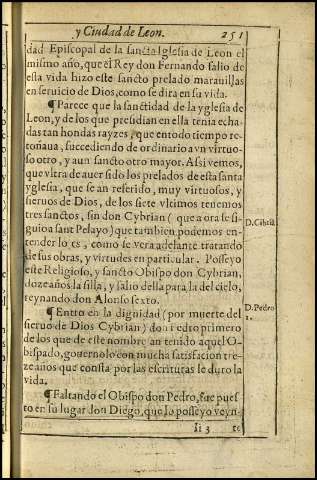 y Ciudad de Leon. 251
dad Episcopal de la sancta Iglesia de Leon el
mismo año, que el Rey don Fernando salio de
esta vida hizo este sancto prelado marauillas
en seruicio de Dios, como se dira en su vida.
¶Parece que la sanctidad de la yglesia de
Leon, y de los que presidian en ella tenia echa-
das tan hondas rayzes, que en todo tiempo re-
toñaua, succediendo de ordinario a vn virtuo-
so otro, y aun sancto otro mayor. Assi vemos,
que vltra de auer sido los prelados de esta santa
yglesia, que se an referido, muy virtuosos, y
sieruos de Dios, de los siete vltimos tenemos
tres sanctos, sin don Cybrian (que aora se si-
guio a sant Pelayo) que tambien podemos en-
tender lo es, como se vera adelante tratando
de sus obras, y virtudes en particular. Posseyo
este Religioso, y sancto Obispo don Cybrian,
doze años la silla, y salio della para la del cielo,
reynando don Alonso sexto.
D. Cibriã.
¶Entro en la dignidad (por muerte del
sieruo de Dios Cybrian) don Pedro primero
de los que de este nombre an tenido aquel O-
bispado, gouernolo con mucha satisfacion tre-
ze años que consta por las escrituras le duro la
vida.
D. Pedro
1.
¶Faltando el Obispo don Pedro, fue pues
to en su lugar don Diego, que lo posseyo veyn-
Ii 3 te